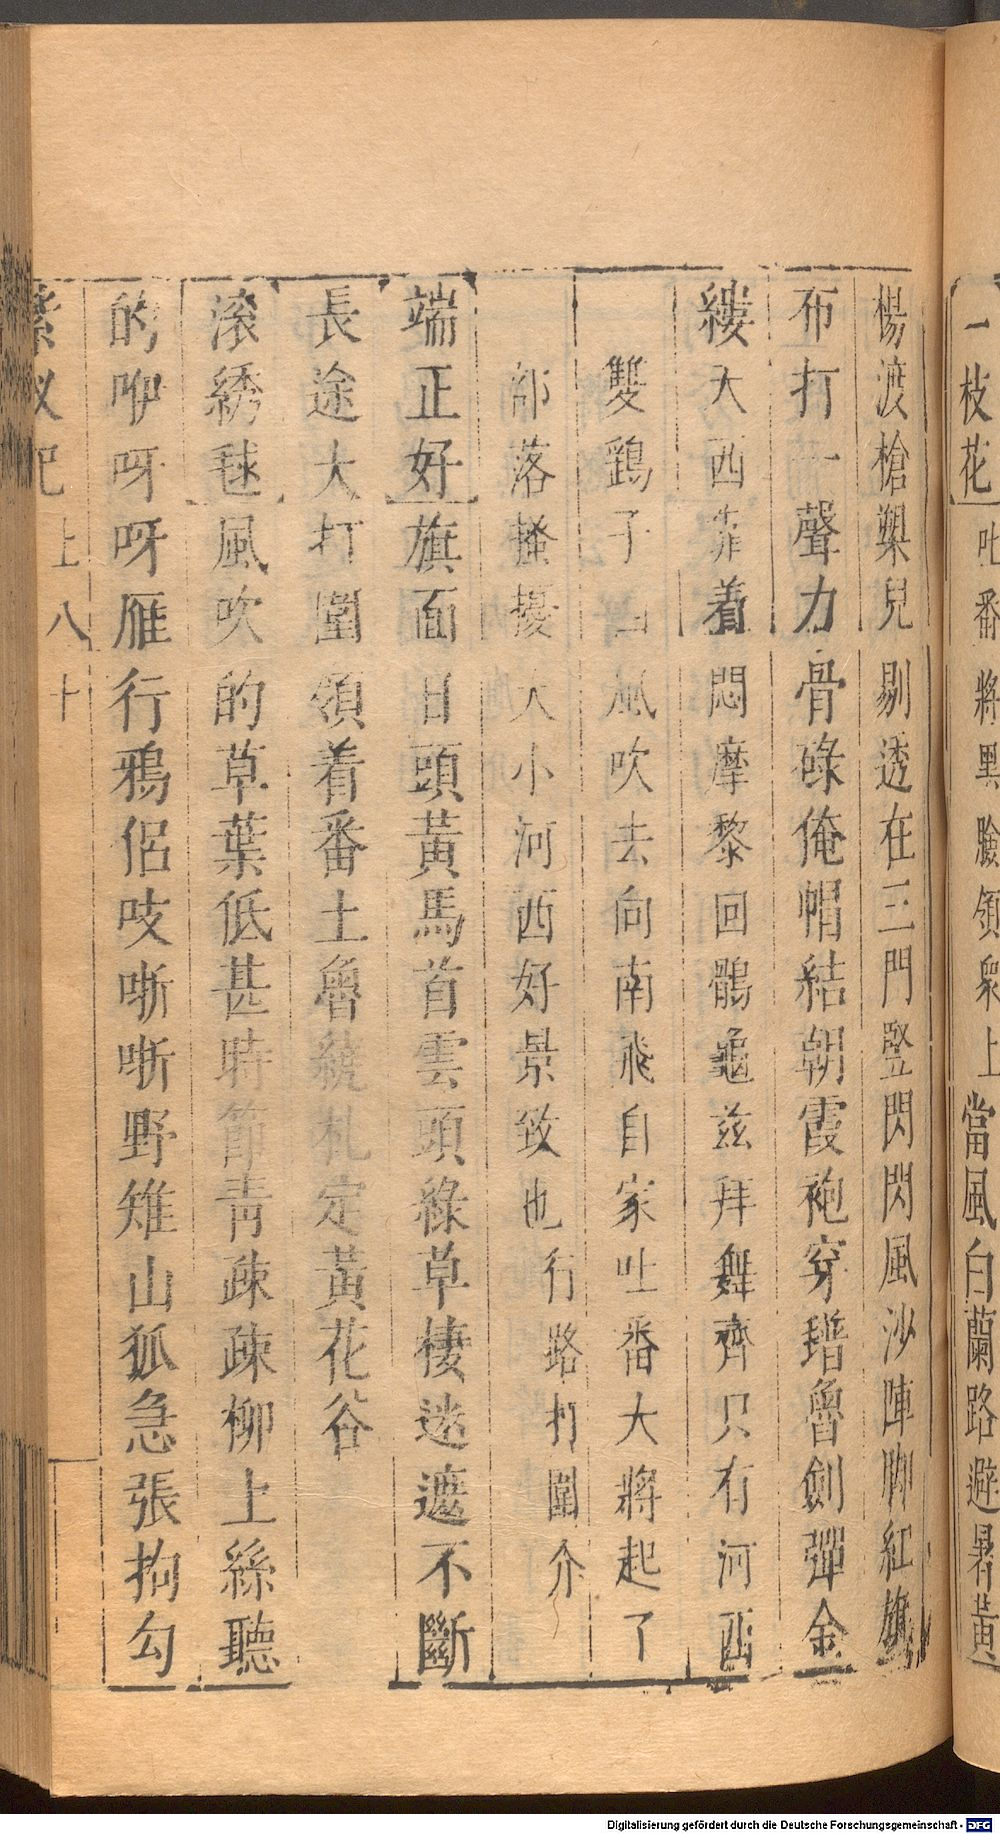 一枝花 吐番將黑臉領衆上 當風白蘭路避暑黃
楊渡槍槊兒剔透在三門豎閃閃風沙陣脚紅旗
布打一聲力骨碌俺帽結朝霞袍穿瑨魯劍彈金
縷大西靠着悶摩黎回鶻龜茲拜舞齊只有河西
雙鷄子 風吹去向南飛自家吐番大將起了
部落搔擾大小河西好景致也行路打圍介
端正好 旗面日頭黃馬首雲頭綠草棲迷遮不斷
長途大打圍領着番土魯統札定黃花谷
滾綉毬 風吹的草葉低甚時節青疎疎柳上絲聽
的咿呀呀雁行鴉侶吱嘶嘶野雉山狐急張拘勾
紫釵記 上 八十
Digitalisierung gefördert durch die Deutsche Forschungsgemeinschaft - DFG